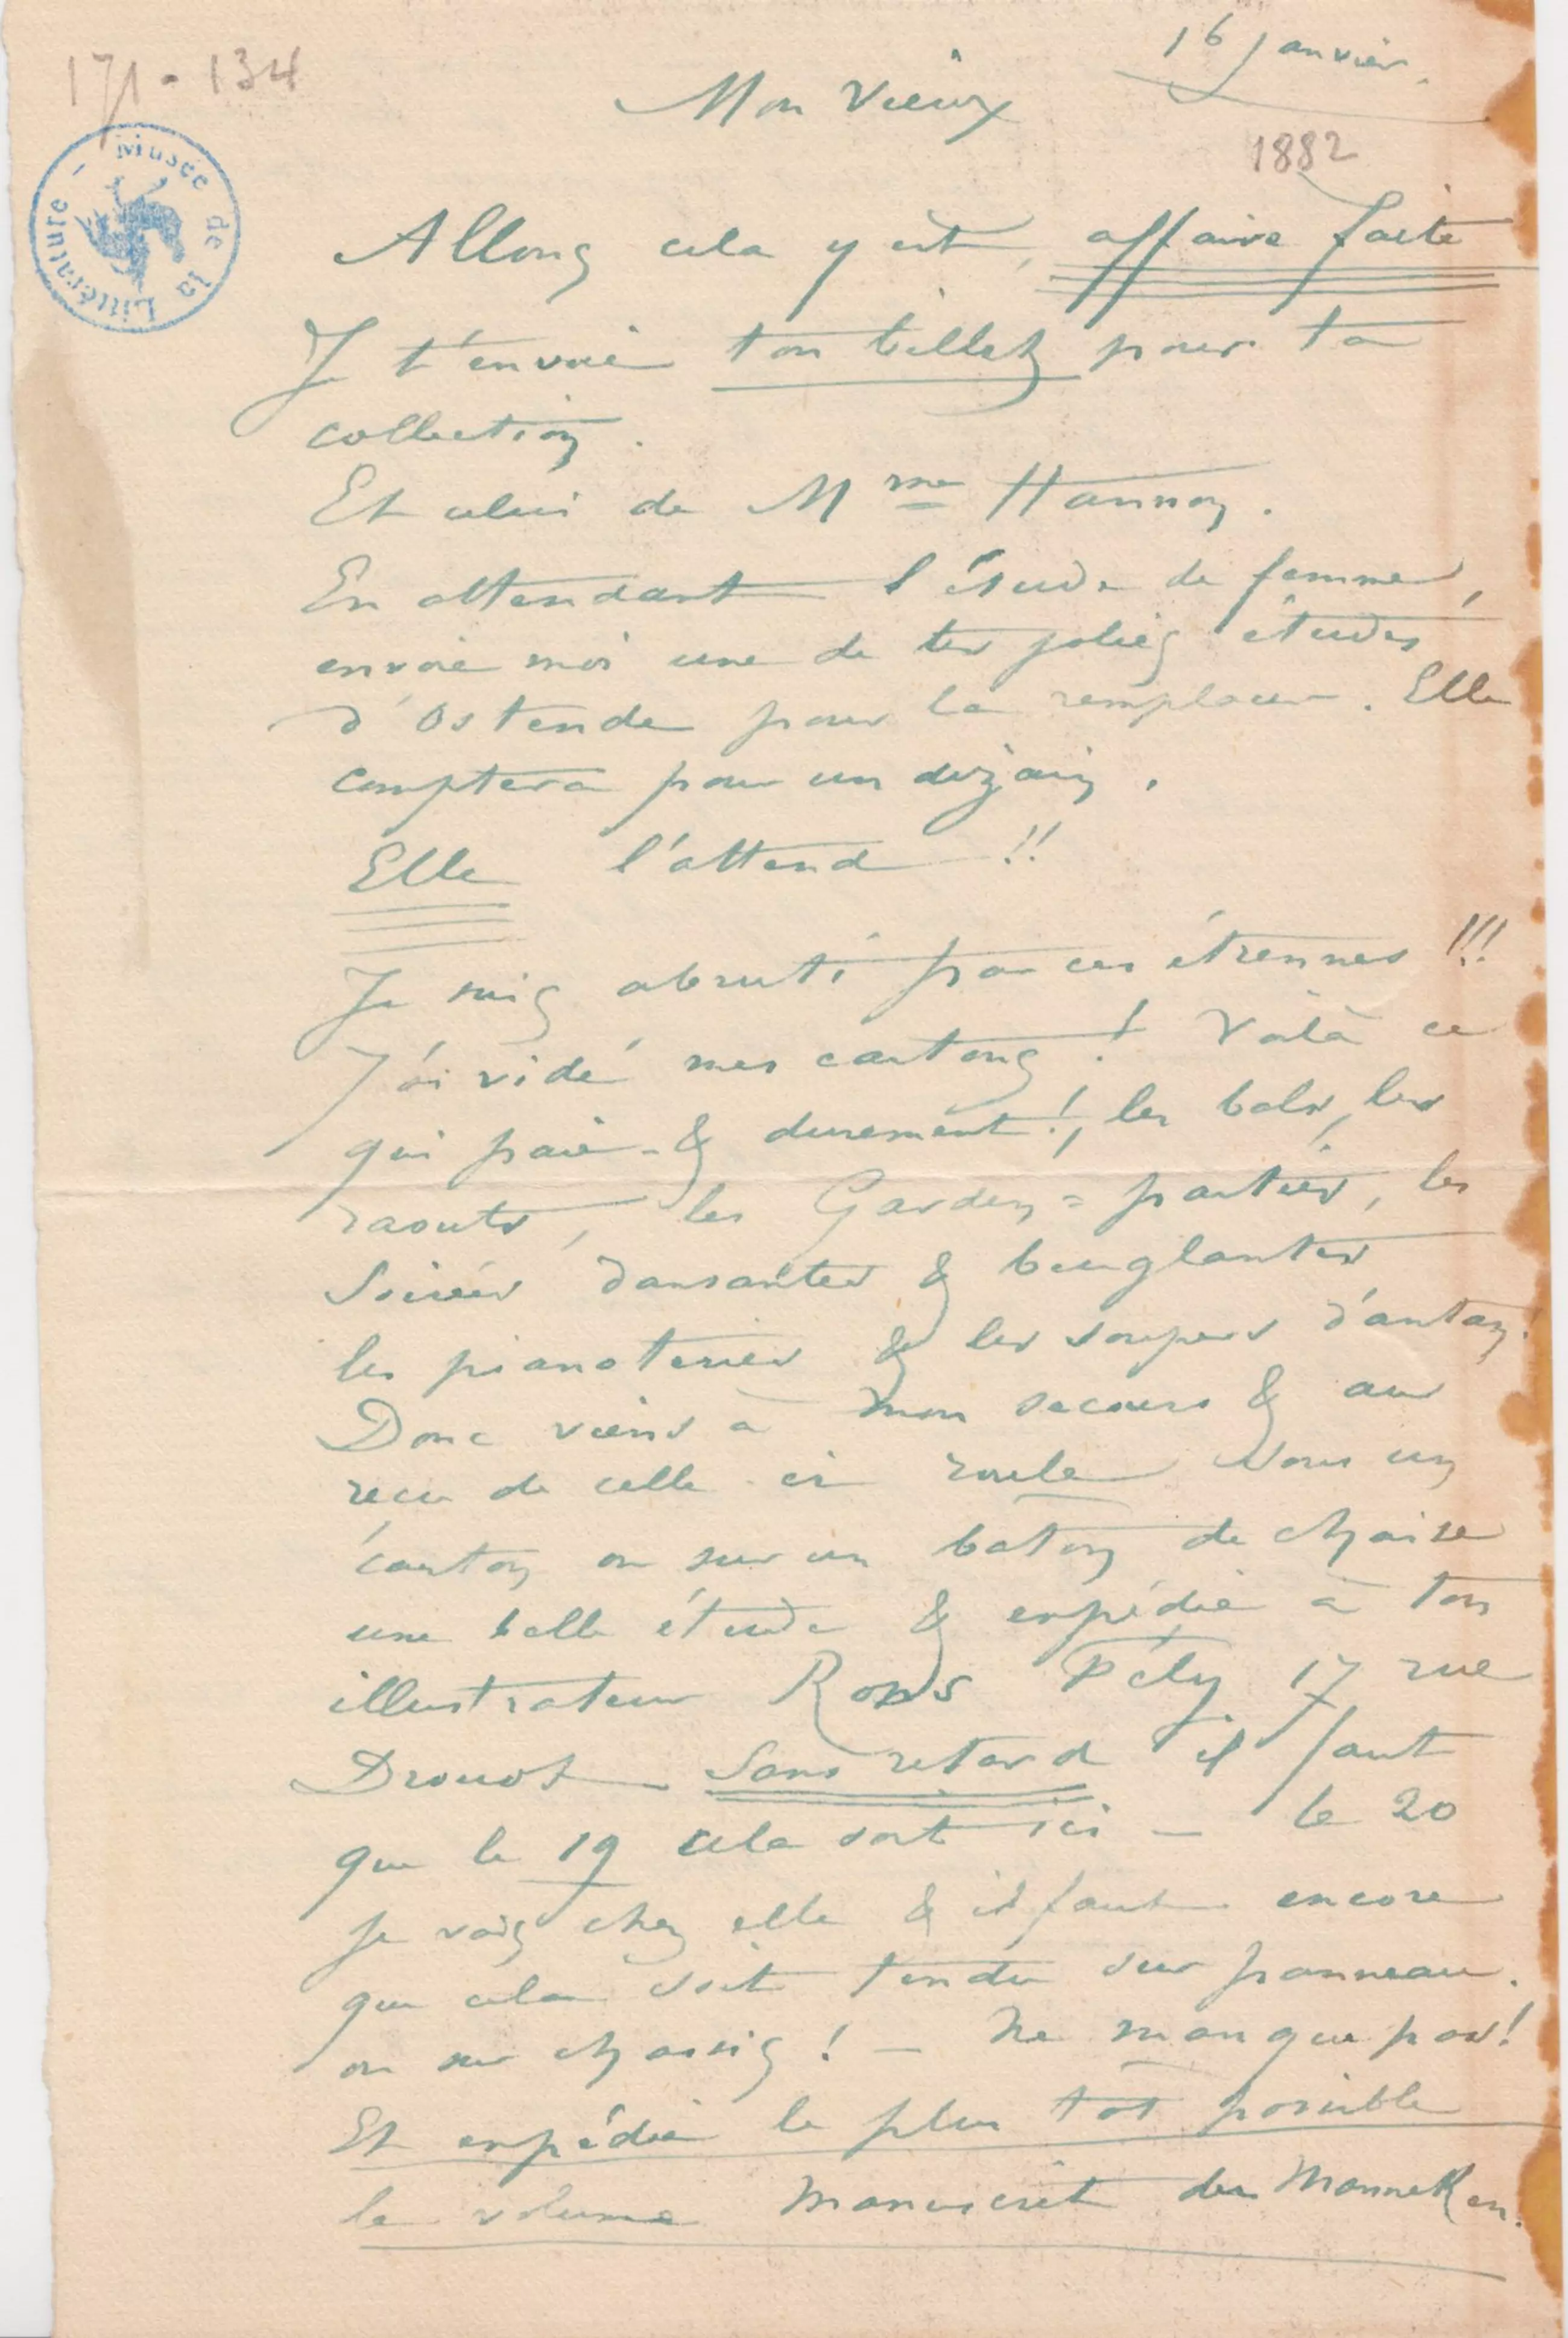 171-134
16 Janvier.
Mon Vieux
1882
Musée de la Littérature -
Allons cela y est, affaire faite
J t'envoie ton billet pour ta
collection.
Et celui de Mme Hannon.
En attendant l'étude de femme,
envoie moi une de tes jolies études
d'Ostende pour la remplacer. Elle
comptera pour un dizain.
Elle l'attend !!
Je suis abruti par ces étrennes !!!
J'ai vidé mes cartons ! Voilà ce
qui paie - & durement !, les bals, les
raouts, les Garden=parties, les
Soirées dansantes & beuglantes
les pianoteries & les soupers d'antan.
Donc viens à mon secours & au
reçu de celle-ci roule dans un
carton ou sur un baton de chaise
une belle étude & expédie à ton
illustrateur Rops Fély 17 rue
Drouot - Sans retard il faut
que le 19 cela soit ici - le 20
Je vais chez elle & il faut encore
que cela soit tendu sur panneau.
ou sur chassis ! - Ne manque pas !
Et expédie le plus tôt possible
le volume manuscrit du Manneken.